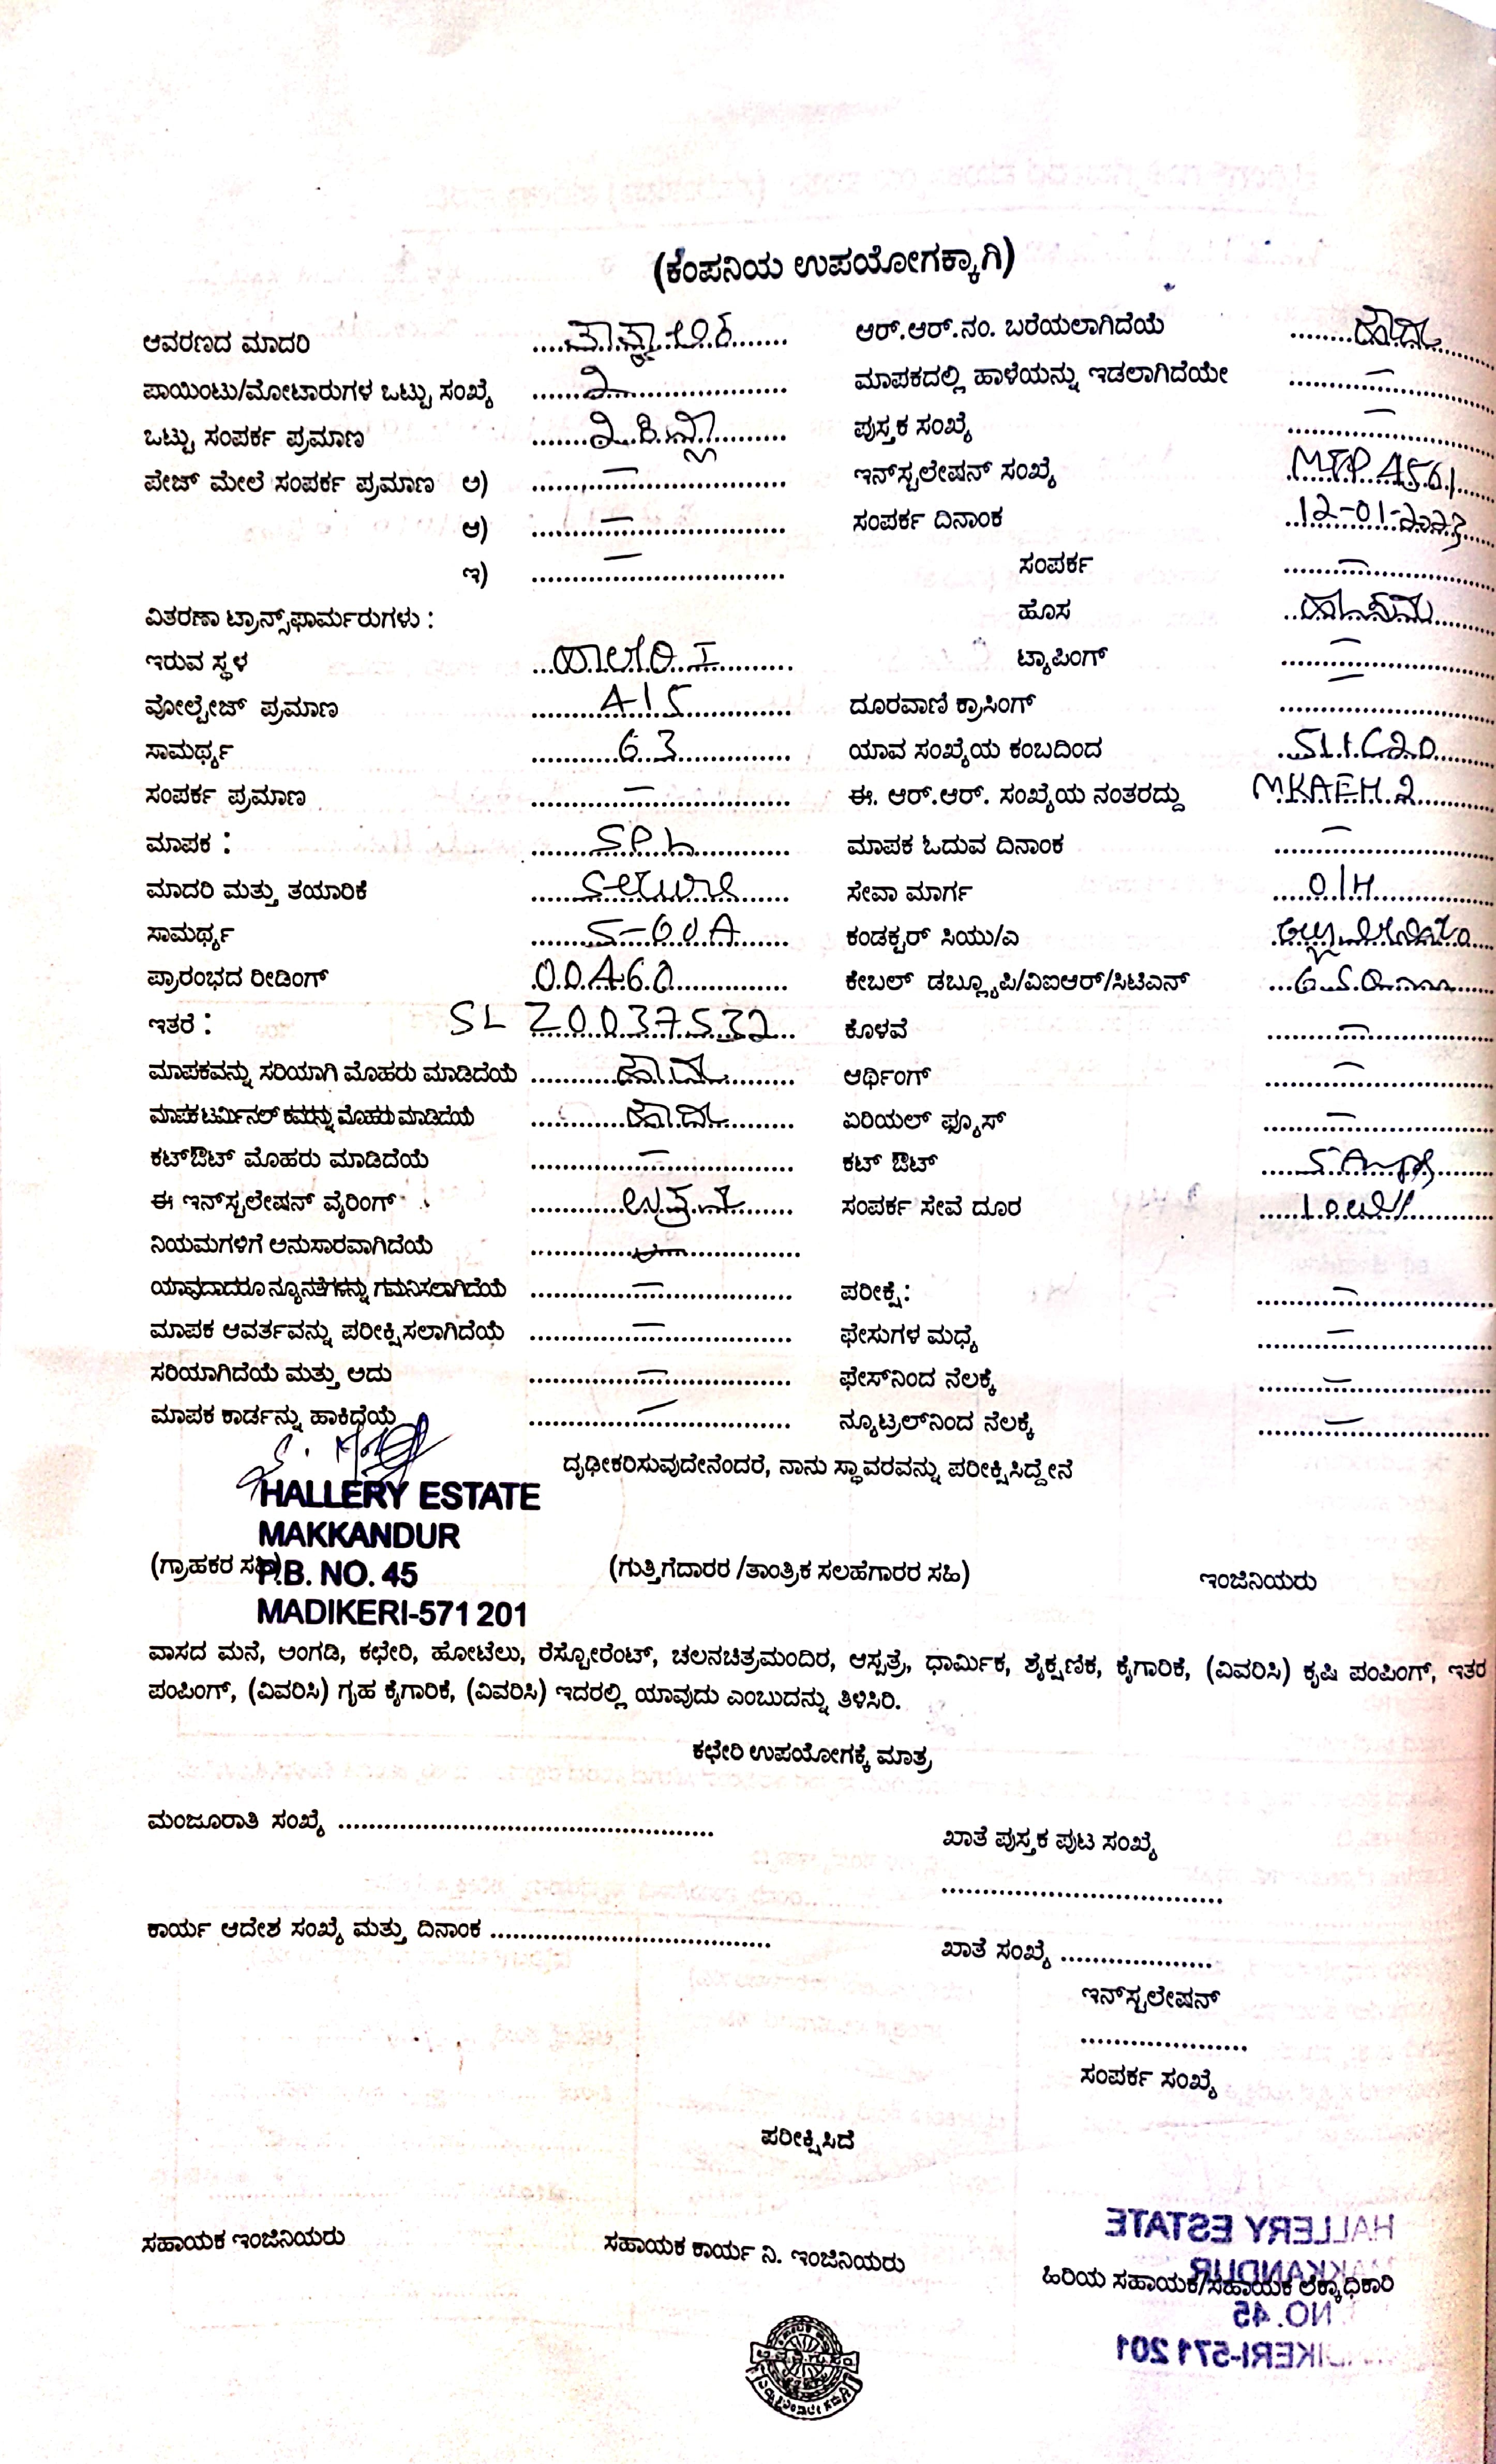 (ಕಂಪನಿಯ ಉಪಯೋಗಕ್ಕಾಗಿ)
ಆವರಣದ ಮಾದರಿ ಆರ್.ಆರ್.ನಂ. ಬರೆಯಲಾಗಿದೆಯೆ ಹೌದು
ಪಾಯಿಂಟು/ಮೋಟಾರುಗಳ ಒಟ್ಟು ಸಂಖ್ಯೆ 2 ಮಾಪಕದಲ್ಲಿ ಹಾಳೆಯನ್ನು ಇಡಲಾಗಿದೆಯೇ —
ಒಟ್ಟು ಸಂಪರ್ಕ ಪ್ರಮಾಣ ಪುಸ್ತಕ ಸಂಖ್ಯೆ —
ಪೇಜ್ ಮೇಲೆ ಸಂಪರ್ಕ ಪ್ರಮಾಣ ಅ) — ಇನ್‌ಸ್ಟಲೇಷನ್ ಸಂಖ್ಯೆ MTP 4561
ಆ) — ಸಂಪರ್ಕ ದಿನಾಂಕ 12-01-2023
ಇ) — ಸಂಪರ್ಕ —
ವಿತರಣಾ ಟ್ರಾನ್ಸ್‌ಫಾರ್ಮರುಗಳು : ಹೊಸ
ಇರುವ ಸ್ಥಳ ಹಾಲೇರಿ I ಟ್ಯಾಪಿಂಗ್ —
ವೋಲ್ಟೇಜ್ ಪ್ರಮಾಣ 415 ದೂರವಾಣಿ ಕ್ರಾಸಿಂಗ್ —
ಸಾಮರ್ಥ್ಯ 63 ಯಾವ ಸಂಖ್ಯೆಯ ಕಂಬದಿಂದ
ಸಂಪರ್ಕ ಪ್ರಮಾಣ — ಈ. ಆರ್.ಆರ್. ಸಂಖ್ಯೆಯ ನಂತರದ್ದು MKAEH 2
ಮಾಪಕ : SPh ಮಾಪಕ ಓದುವ ದಿನಾಂಕ —
ಮಾದರಿ ಮತ್ತು ತಯಾರಿಕೆ Secure ಸೇವಾ ಮಾರ್ಗ O/H
ಸಾಮರ್ಥ್ಯ 5-60A ಕಂಡಕ್ಟರ್ ಸಿಯು/ಎ
ಪ್ರಾರಂಭದ ರೀಡಿಂಗ್ 00460 ಕೇಬಲ್ ಡಬ್ಲ್ಯೂಪಿ/ವಿಐಆರ್/ಸಿಟಿಎನ್
ಇತರೆ : SL Z0037532 ಕೊಳವೆ —
ಮಾಪಕವನ್ನು ಸರಿಯಾಗಿ ಮೊಹರು ಮಾಡಿದೆಯೆ ಹೌದು ಆರ್ಥಿಂಗ್ —
ಮಾಪಕ ಟರ್ಮಿನಲ್ ಕವರನ್ನು ಮೊಹರು ಮಾಡಿದೆಯೆ ಹೌದು ಏರಿಯಲ್ ಫ್ಯೂಸ್ —
ಕಟ್‌ಔಟ್ ಮೊಹರು ಮಾಡಿದೆಯೆ — ಕಟ್ ಔಟ್
ಈ ಇನ್‌ಸ್ಟಲೇಷನ್ ವೈರಿಂಗ್ ಸಂಪರ್ಕ ಸೇವೆ ದೂರ
ನಿಯಮಗಳಿಗೆ ಅನುಸಾರವಾಗಿದೆಯೆ
ಯಾವುದಾದರೂ ನ್ಯೂನತೆಗಳನ್ನು ಗಮನಿಸಲಾಗಿದೆಯೆ — ಪರೀಕ್ಷೆ: —
ಮಾಪಕ ಆವರ್ತವನ್ನು ಪರೀಕ್ಷಿಸಲಾಗಿದೆಯೆ — ಫೇಸುಗಳ ಮಧ್ಯೆ —
ಸರಿಯಾಗಿದೆಯೆ ಮತ್ತು ಅದು — ಫೇಸ್‌ನಿಂದ ನೆಲಕ್ಕೆ —
ಮಾಪಕ ಕಾರ್ಡನ್ನು ಹಾಕಿದೆಯೆ — ನ್ಯೂಟ್ರಲ್‌ನಿಂದ ನೆಲಕ್ಕೆ —
ದೃಢೀಕರಿಸುವುದೇನೆಂದರೆ, ನಾನು ಸ್ಥಾವರವನ್ನು ಪರೀಕ್ಷಿಸಿದ್ದೇನೆ
HALLERY ESTATE
MAKKANDUR
(ಗ್ರಾಹಕರ ಸಹಿ) P.B. NO. 45 (ಗುತ್ತಿಗೆದಾರರ /ತಾಂತ್ರಿಕ ಸಲಹೆಗಾರರ ಸಹಿ) ಇಂಜಿನಿಯರು
MADIKERI-571 201
ವಾಸದ ಮನೆ, ಅಂಗಡಿ, ಕಛೇರಿ, ಹೋಟೆಲು, ರೆಸ್ಟೋರೆಂಟ್, ಚಲನಚಿತ್ರಮಂದಿರ, ಆಸ್ಪತ್ರೆ, ಧಾರ್ಮಿಕ, ಶೈಕ್ಷಣಿಕ, ಕೈಗಾರಿಕೆ, (ವಿವರಿಸಿ) ಕೃಷಿ ಪಂಪಿಂಗ್, ಇತರ
ಪಂಪಿಂಗ್, (ವಿವರಿಸಿ) ಗೃಹ ಕೈಗಾರಿಕೆ, (ವಿವರಿಸಿ) ಇದರಲ್ಲಿ ಯಾವುದು ಎಂಬುದನ್ನು ತಿಳಿಸಿರಿ.
ಕಛೇರಿ ಉಪಯೋಗಕ್ಕೆ ಮಾತ್ರ
ಮಂಜೂರಾತಿ ಸಂಖ್ಯೆ ........ ಖಾತೆ ಪುಸ್ತಕ ಪುಟ ಸಂಖ್ಯೆ
ಕಾರ್ಯ ಆದೇಶ ಸಂಖ್ಯೆ ಮತ್ತು ದಿನಾಂಕ ........ ಖಾತೆ ಸಂಖ್ಯೆ ........
ಇನ್‌ಸ್ಟಲೇಷನ್
ಸಂಪರ್ಕ ಸಂಖ್ಯೆ
ಪರೀಕ್ಷಿಸಿದೆ
HALLERY ESTATE
ಸಹಾಯಕ ಇಂಜಿನಿಯರು ಸಹಾಯಕ ಕಾರ್ಯ ನಿ. ಇಂಜಿನಿಯರು ಹಿರಿಯ ಸಹಾಯಕ/ಸಹಾಯಕ ಲೆಕ್ಕಾಧಿಕಾರಿ
NO. 45
DIKERI-571 201